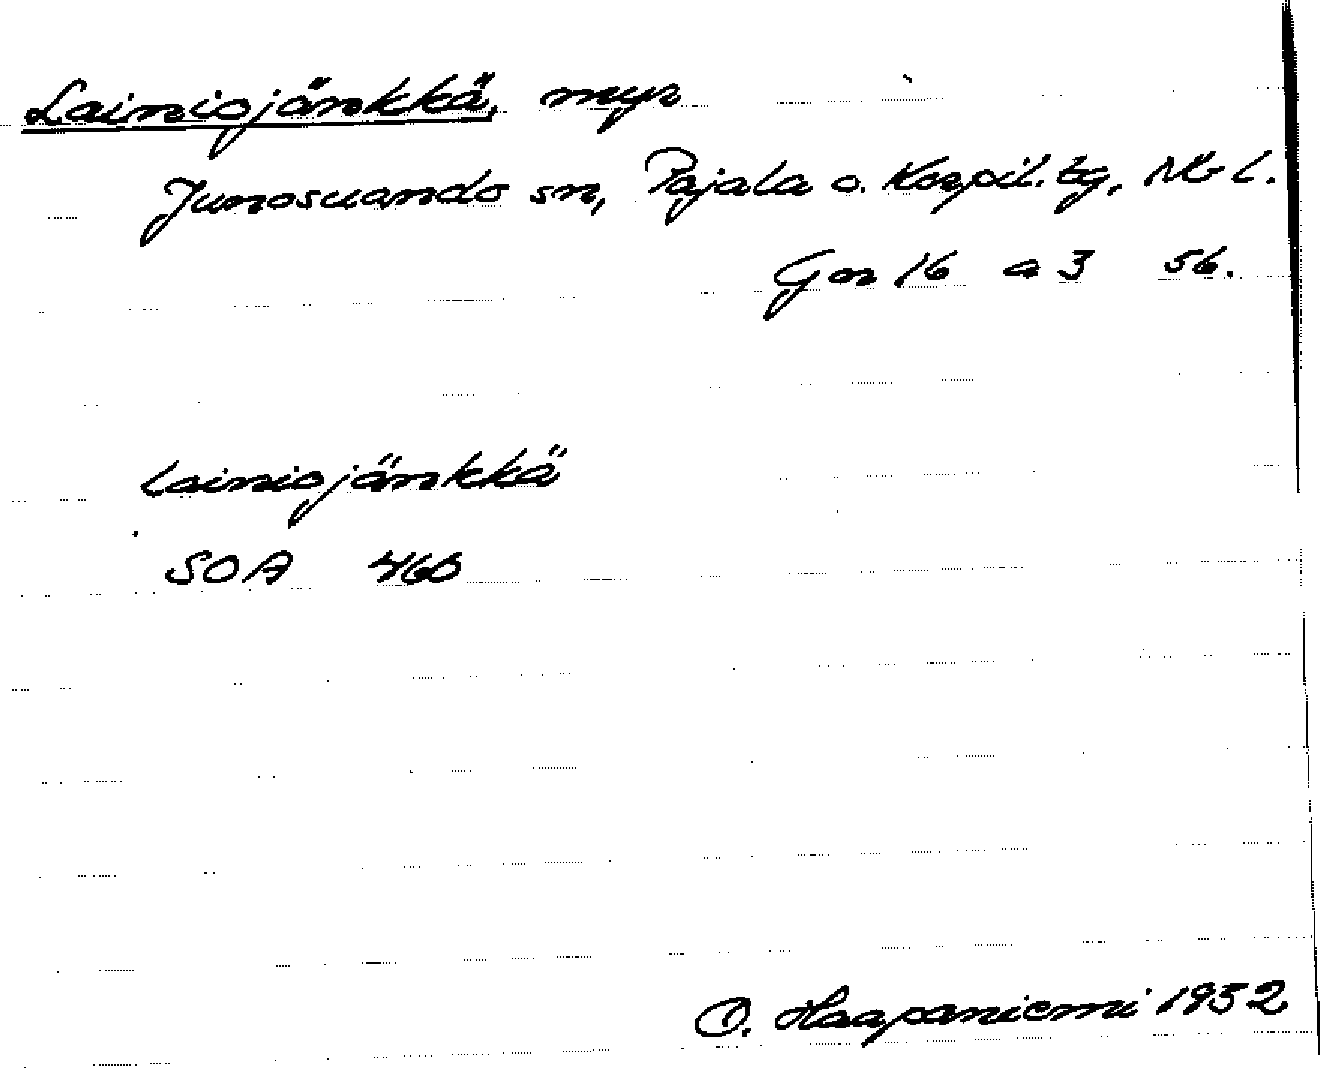 Lainiojänkkä, myr
Junosuando sn, Pajala o. Korpil. tg, Nb l.
Gor 16 a 3 56.
Lainiojänkkä
SOA 460
O. Haapaniemi 1952